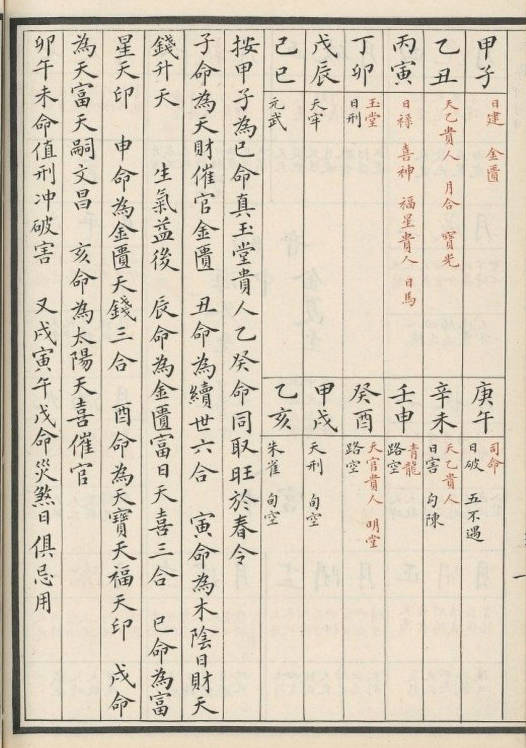 甲子 日建 金匱
乙丑 天乙貴人 月合 寶光
丙寅 日祿 喜神 福星貴人 日馬
丁卯 玉堂 日刑
戊辰 天牢
己巳 元武
庚午 司命 日破 五不遇
辛未 天乙貴人 日害 勾陳
壬申 青龍 路空
癸酉 天官貴人 明堂 路空
甲戌 天刑 旬空
乙亥 朱雀 旬空
按甲子為已命真玉堂貴人乙癸命同取旺於春令
子命為天財催官金匱 丑命為續世六合 寅命為木陰日財天
錢升天 生氣益後 辰命為金匱富日天喜三合 巳命為富
星天印 申命為金匱天錢三合 酉命為天寶天福天印 戌命
為天富天嗣文昌 亥命為太陽天喜催官
卯午未命值刑冲破害 又戌寅午戊命災煞日俱忌用